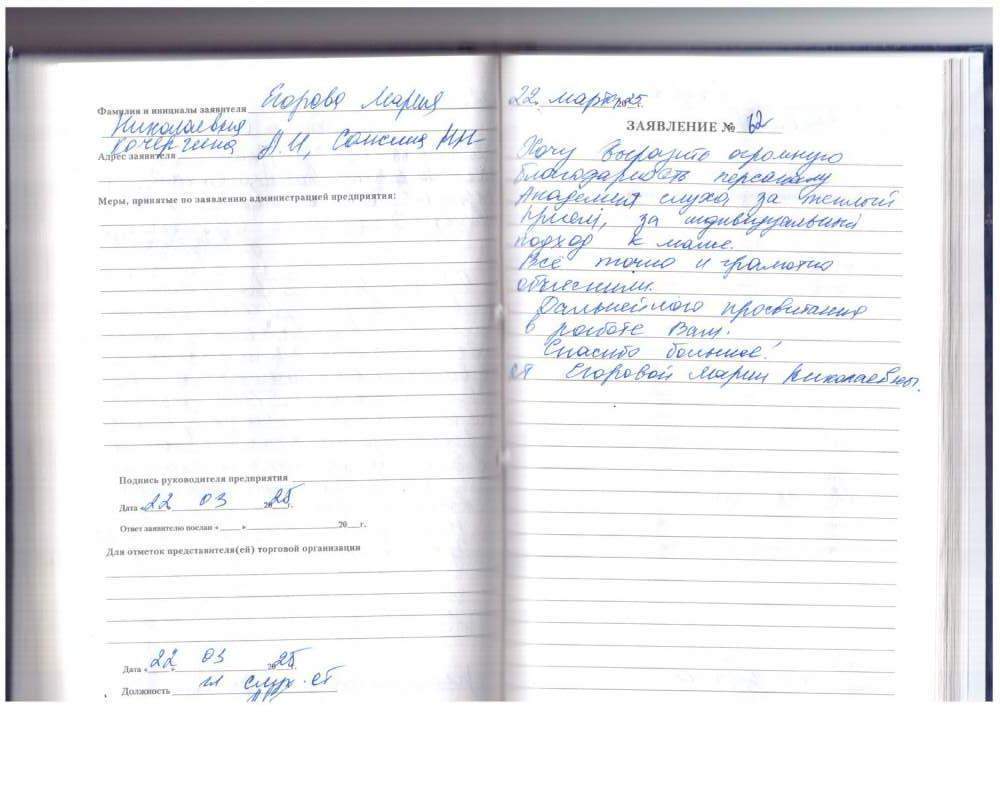 Фамилия и инициалы заявителя Егорова Мария
Николаевна
Кочергина А.И, Сонсина НН
Адрес заявителя
Меры, принятые по заявлению администрацией предприятия:
Подпись руководителя предприятия
Дата «22 03 2025г.
Ответ заявителю послан « » 20 г.
Для отметок представителя(ей) торговой организации
Дата «22 03 2025г.
Должность
22. марта 25г.
ЗАЯВЛЕНИЕ № 62
Хочу выразить огромную
благодарность персоналу
Академия слуха, за теплый
прием, за индивидуальный
подход к маме.
Все точно и грамотно
объяснили.
Дальнейшего процветания
в работе Вам.
Спасибо большое!
от Егоровой Марии Николаевны.